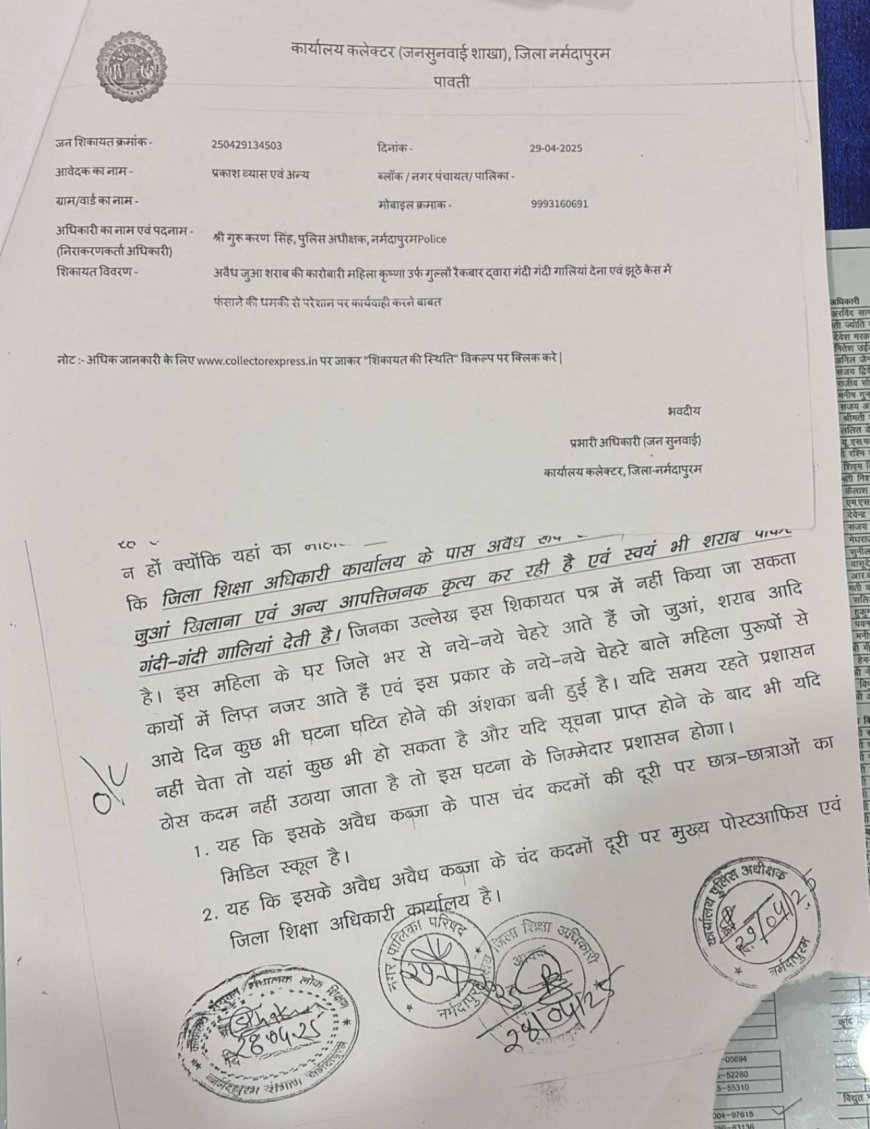 कार्यालय कलेक्टर (जनसुनवाई शाखा), जिला नर्मदापुरम
पावती
जन शिकायत क्रमांक - 250429134503 दिनांक - 29-04-2025
आवेदक का नाम - प्रकाश व्यास एवं अन्य ब्लॉक / नगर पंचायत/ पालिका -
ग्राम/वार्ड का नाम - मोबाइल क्रमाक - 9993160691
अधिकारी का नाम एवं पदनाम - श्री गुरू करण सिंह, पुलिस अधीक्षक, नर्मदापुरमPolice
(निराकरणकर्ता अधिकारी)
शिकायत विवरण - अवैध जुआ शराब की कारोबारी महिला कृष्णा उर्फ गुल्लों रैकबार द्वारा गंदी गंदी गालियां देना एवं झूठे केस में
फंसाने की धमकी से परेशान पर कार्यवाही करने बाबत
नोट :- अधिक जानकारी के लिए www.collectorexpress.in पर जाकर "शिकायत की स्थिति" विकल्प पर क्लिक करे |
भवदीय
प्रभारी अधिकारी (जन सुनवाई)
कार्यालय कलेक्टर, जिला-नर्मदापुरम
न हों क्योंकि यहां का
कि जिला शिक्षा अधिकारी कार्यालय के पास अवैध
जुआं खिलाना एवं अन्य आपत्तिजनक कृत्य कर रही है एवं स्वयं भी शराब पीकर
गंदी-गंदी गालियां देती है। जिनका उल्लेख इस शिकायत पत्र में नहीं किया जा सकता
है। इस महिला के घर जिले भर से नये-नये चेहरे आते हैं जो जुआं, शराब आदि
कार्यो में लिप्त नजर आते हैं एवं इस प्रकार के नये-नये चेहरे बाले महिला पुरूषों से
आये दिन कुछ भी घटना घटित होने की अंशका बनी हुई है। यदि समय रहते प्रशासन
नहीं चेता तो यहां कुछ भी हो सकता है और यदि सूचना प्राप्त होने के बाद भी यदि
ठोस कदम नहीं उठाया जाता है तो इस घटना के जिम्मेदार प्रशासन होगा।
1. यह कि इसके अवैध कब्जा के पास चंद कदमों की दूरी पर छात्र-छात्राओं का
मिडिल स्कूल है।
2. यह कि इसके अवैध अवैध कब्जा के चंद कदमों दूरी पर मुख्य पोस्टआफिस एवं
जिला शिक्षा अधिकारी कार्यालय है।
कार्यालय पुलिस अधीक्षक
29/04/25
नर्मदापुरम
नगर पालिका परिषद
नर्मदापुरम
जिला शिक्षा अधिकारी
28/04/25
संचालक लोक शिक्षण
28.04.25
नर्मदापुरम संभाग नर्मदापुरम
अधिकारी
-05694
-52280
5-55310
004-97615
विद्युत